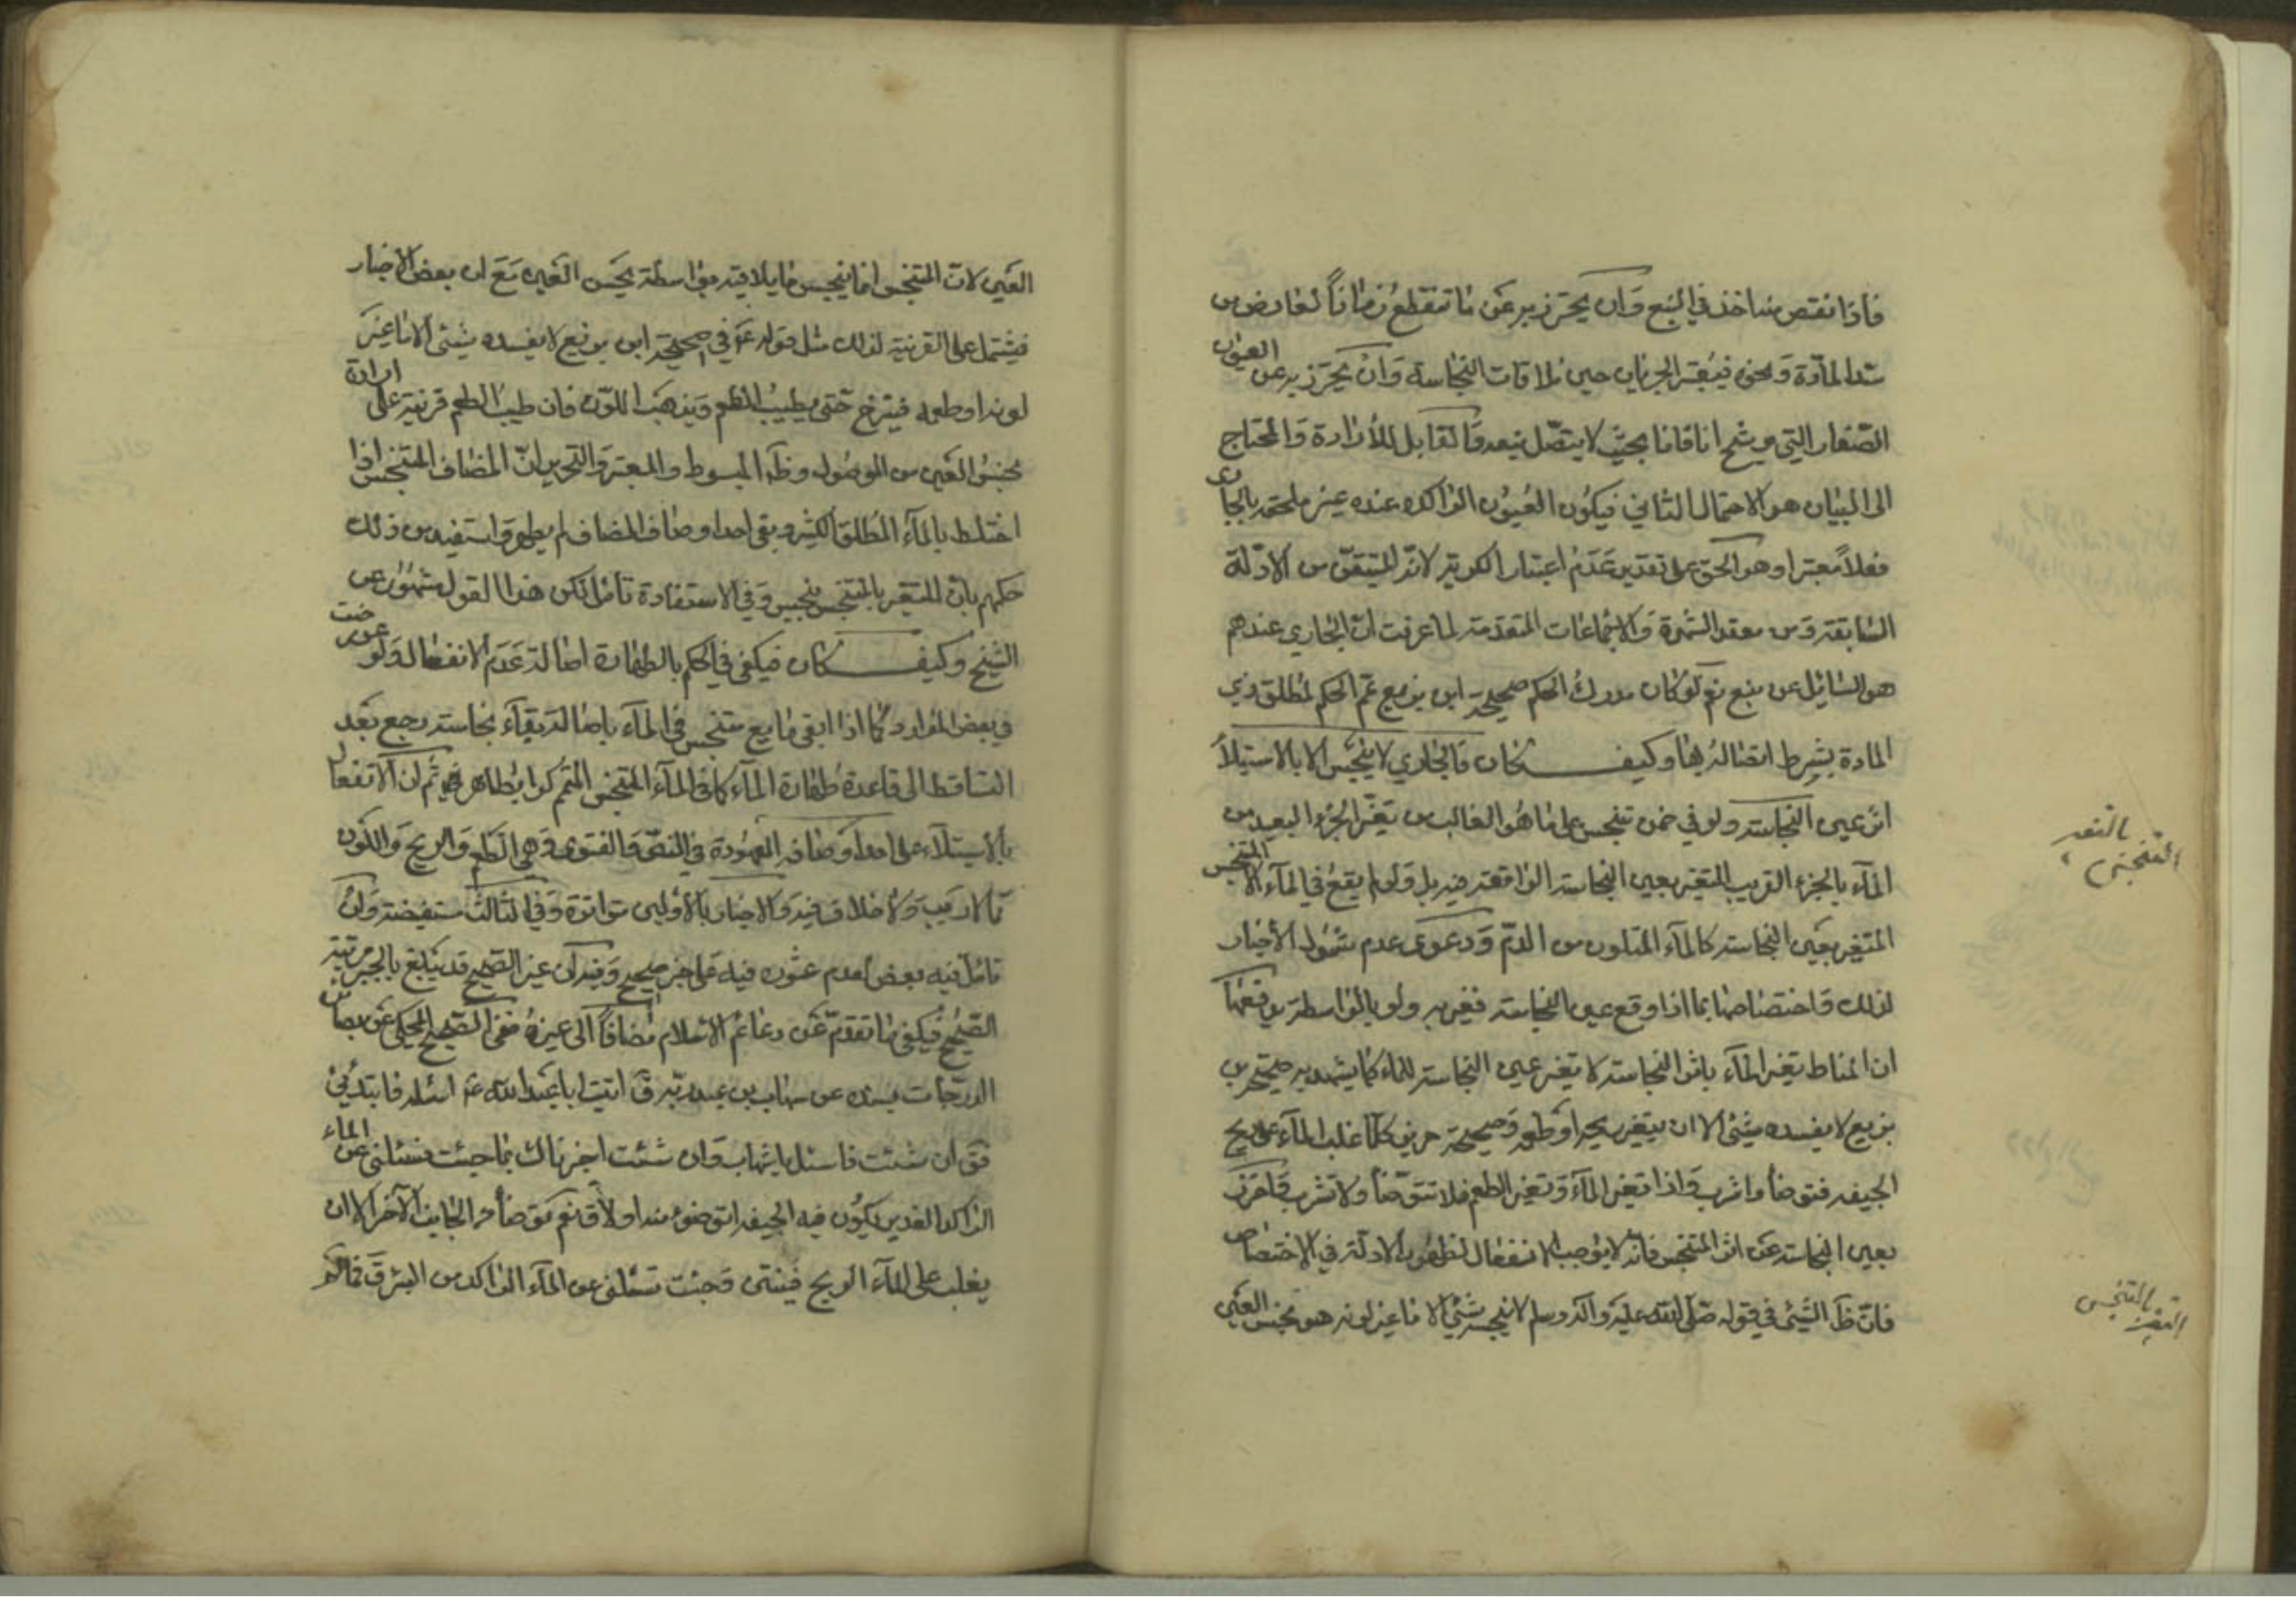 فاذا نقص منه اخذ في النبع وان يحترز به عن ما تنقطع زمانا لعارض من
سد المادة ونحوه فيعتبر الجريان حين ملاقات النجاسة وان يحترز به عن العيون
الصغار التي يرشح انا فانا بحيث لا يتصل نبعه والقابل للارادة والمحتاج
الى البيان هو الاحتمال الثاني فيكون العيون الراكدة عنده غير ملحقة بالجاري
فعلا معتبر وهو الحق على تقدير عدم اعتبار الكرية لانه المتيقن من الادلة
السابقة ومن معقد الشهرة والاجماعات المتقدمة لما عرفت ان الجاري عندهم
هو السائل عن نبع نعم لو كان مدرك الحكم صحيحة ابن بزيع عم الحكم لمطلق ذي
المادة بشرط اتصاله بها وكيف كان فالجاري لا ينجس الا باستيلاء
اثر عين النجاسة ولو في ضمن متنجس على ما هو الغالب من تغير الجزء البعيد من
الماء بالجزء القريب المتغير بعين النجاسة الواقعة فيه بل ولو لم يقع في الماء الا المتنجس
المتغير بعين النجاسة كالماء المتلون من الدم ودعوى عدم شمول الاخبار
لذلك واختصاصها بما اذا وقع عين النجاسة فغيره ولو بالواسطة يدفعها
ان المناط تغير الماء باثر النجاسة لا تغير عين النجاسة للماء كما يشهد به صحيحة بن
بزيع لا يفسده شيء الا ان يتغير ريحه او طعمه وصحيحة حريز كلما غلب الماء على ريح
الجيفة فتوضأ واشرب فاذا تغير الماء وتغير الطعم فلا تتوضأ ولا تشرب واحترز
بعين النجاسة عن اثر المتنجس فانه لا يوجب الانفعال لظهور الادلة في الاختصاص
فان ظ الشيء في قوله صلى الله عليه وآله وسلم لا ينجسه شيء الا ما غير لونه هو نجس العين
بالتغير
المتنجس
بالمتنجس
العين لان المتنجس انما ينجس ما يلاقيه بواسطة نجس العين مع ان بعض الاخبار
فيشتمل على القرينة لذلك مثل قوله ع في صحيحة ابن بزيع لا يفسده شيء الا ما غير
لونه او طعمه فينزح حتى يطيب الطعم ويذهب اللون فان طيب الطعم قرينة على ارادة
نجس العين من الموصول وظ المبسوط والمعتبر والتحرير ان المضاف المتنجس اذا
اختلط بالماء المطلق الكثير وبقي احد اوصاف المضاف لم يطهر واستفيد من ذلك
حكمهم بان المتغير بالمتنجس نجس وفي الاستفادة تأمل لكن هذا القول مشهور عن
الشيخ وكيف كان فيكفي في الحكم بالطهارة اصالة عدم الانفعال ولو عورضت
في بعض الموارد كما اذا ابقي مايع متنجس في الماء باصالة بقاء نجاسته رجع بعد
التساقط الى قاعدة طهارة الماء كما في الماء المتنجس المتمم كرا بطاهر ثم ان الانفعال
بالاستيلاء على احد اوصافه المعهودة في النص والفتوى وهي الطعم والريح واللون
مما لا ريب ولا خلاف فيه والاخبار بالاولين متواترة وفي الثالث مستفيضة وان
تامل فيه بعض لعدم عثوره فيه على خبر صحيح وفيه ان غير الصحيح قد يبلغ بالجبر مرتبة
الصحيح فيكفي ما تقدم عن دعائم الاسلام مضافا الى غيره ففي الصحيح المحكي عن بصائر
الدرجات بسنده عن شهاب بن عبد ربه ق اتيت ابا عبد الله ع اسئله فابتدئني
فق ان شئت فاسئل يا شهاب وان شئت اخبرناك بما جئت تسئلني عن الماء
الراكد الغدير يكون فيه الجيفة اتوضؤ منه او لا ق نعم توضأ من الجانب الآخر الا ان
يغلب على الماء الريح فينتن وجئت تسئلني عن الماء الراكد من البئر ق فما لم